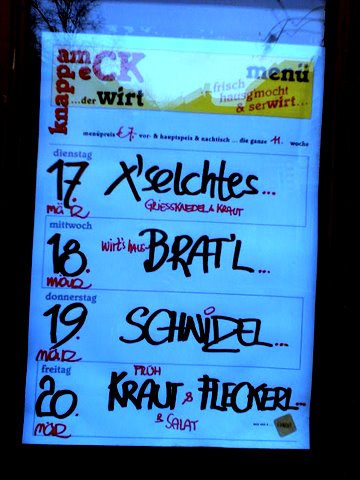 knapp am eCK
...der wirt
menü
frisch
hausgmocht
& serwirt...
menüpreis €7.- vor- & hauptspeis & nachtisch ... die ganze 11. woche
dienstag
17. MäR
X'selchtes...
GRIESSKNEDEL & KRAUT
mittwoch
18. MäR
wirt's haus-
BRAT'L...
donnerstag
19. MäR
SCHNIDEL...
freitag
20. MäR
FRÜH
KRAUT & FLECKERL...
& SALAT